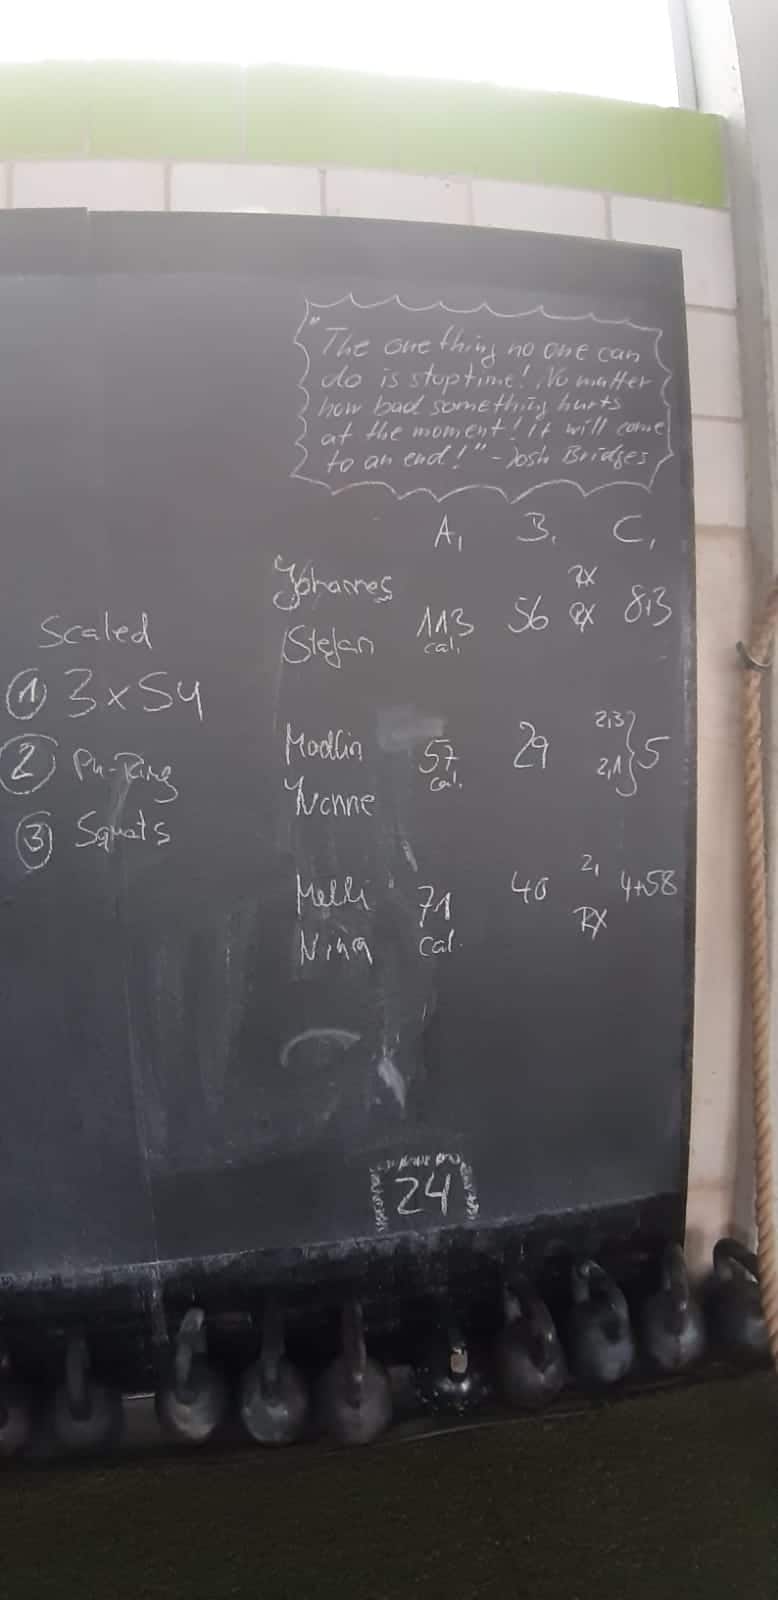 "The one thing no one can
do is stop time! No matter
how bad something hurts
at the moment! it will come
to an end!" - Josh Bridges
A, B, C,
Johannes
Stefan 113 cal. 56 RX RX 8,3
Scaled
① 3x54
② Pu-Ring
③ Squats
Madlin 57 cal. 29 2,3 2,1 } 5
Yvonne
Melli 71 40 2, 4+58
Nina cal. RX
24